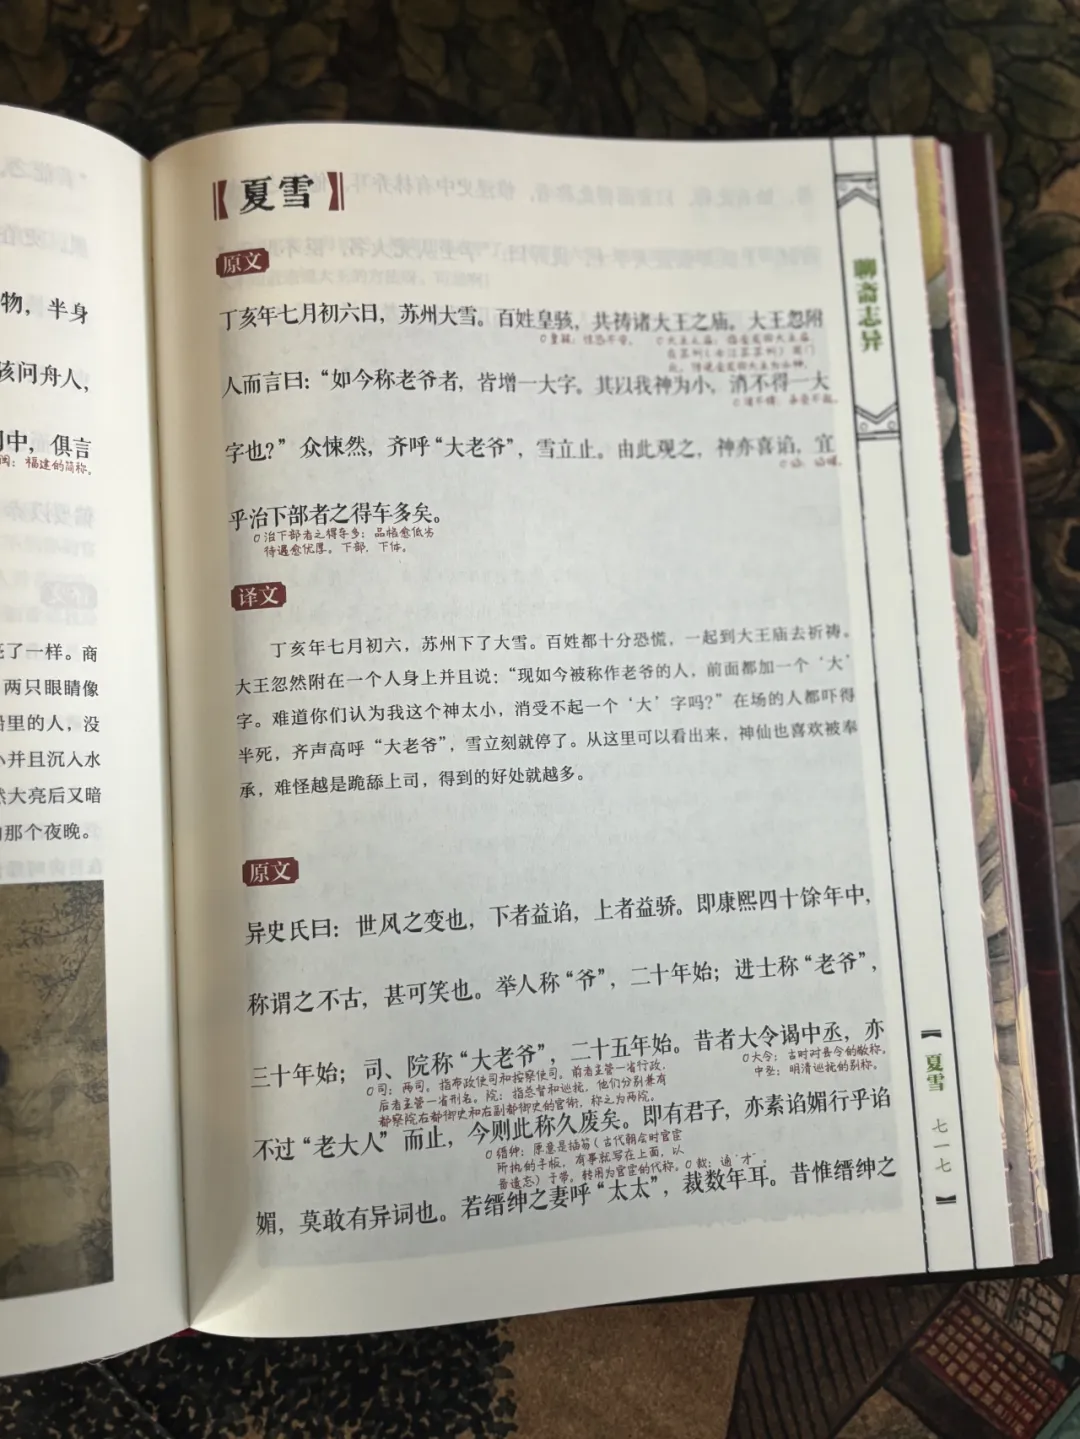 物，半身
亥问舟人，
中，俱言
闽：福建的简称。
亮了一样。商
两只眼睛像
船里的人，没
小并且沉入水
然大亮后又暗
的那个夜晚。
【夏雪】
原文
丁亥年七月初六日，苏州大雪。百姓皇骇，共祷诸大王之庙。大王忽附
皇骇：惊恐不安。
大王之庙：指金龙四大王庙，
在苏州（今江苏苏州）阊门
人而言曰：“如今称老爷者，皆增一大字。其以我神为小，消不得一大
字也？” 众悚然，齐呼“大老爷”，雪立止。由此观之，神亦喜谄，宜
乎治下部者之得车多矣。
治下部者之得车多：品格愈低劣
待遇愈优厚。下部，下体。
译文
丁亥年七月初六，苏州下了大雪。百姓都十分恐慌，一起到大王庙去祈祷。
大王忽然附在一个人身上并且说：“现如今被称作老爷的人，前面都加一个‘大’
字。难道你们认为我这个神太小，消受不起一个‘大’字吗？”在场的人都吓得
半死，齐声高呼“大老爷”，雪立刻就停了。从这里可以看出来，神仙也喜欢被奉
承，难怪越是跪舔上司，得到的好处就越多。
原文
异史氏曰：世风之变也，下者益谄，上者益骄。即康熙四十馀年中，
称谓之不古，甚可笑也。举人称“爷”，二十年始；进士称“老爷”，
三十年始；司、院称“大老爷”，二十五年始。昔者大令谒中丞，亦
司：两司，指布政使司和按察使司。前者主管一省行政，
后者主管一省刑名。院：指总督和巡抚，他们分别兼有
都察院右都御史和右副都御史的官衔，称之为两院。
大令：古时对县令的敬称。
中丞：明清巡抚的别称。
不过“老大人”而止，今则此称久废矣。即有君子，亦素谄媚行乎谄
缙绅：原意是插笏（古代朝会时官宦
所执的手板，有事就写在上面，以
备遗忘）于带。转用为官宦的代称。
裁：通“才”。
媚，莫敢有异词也。若缙绅之妻呼“太太”，裁数年耳。昔惟缙绅之
聊斋志异
夏雪
七一七